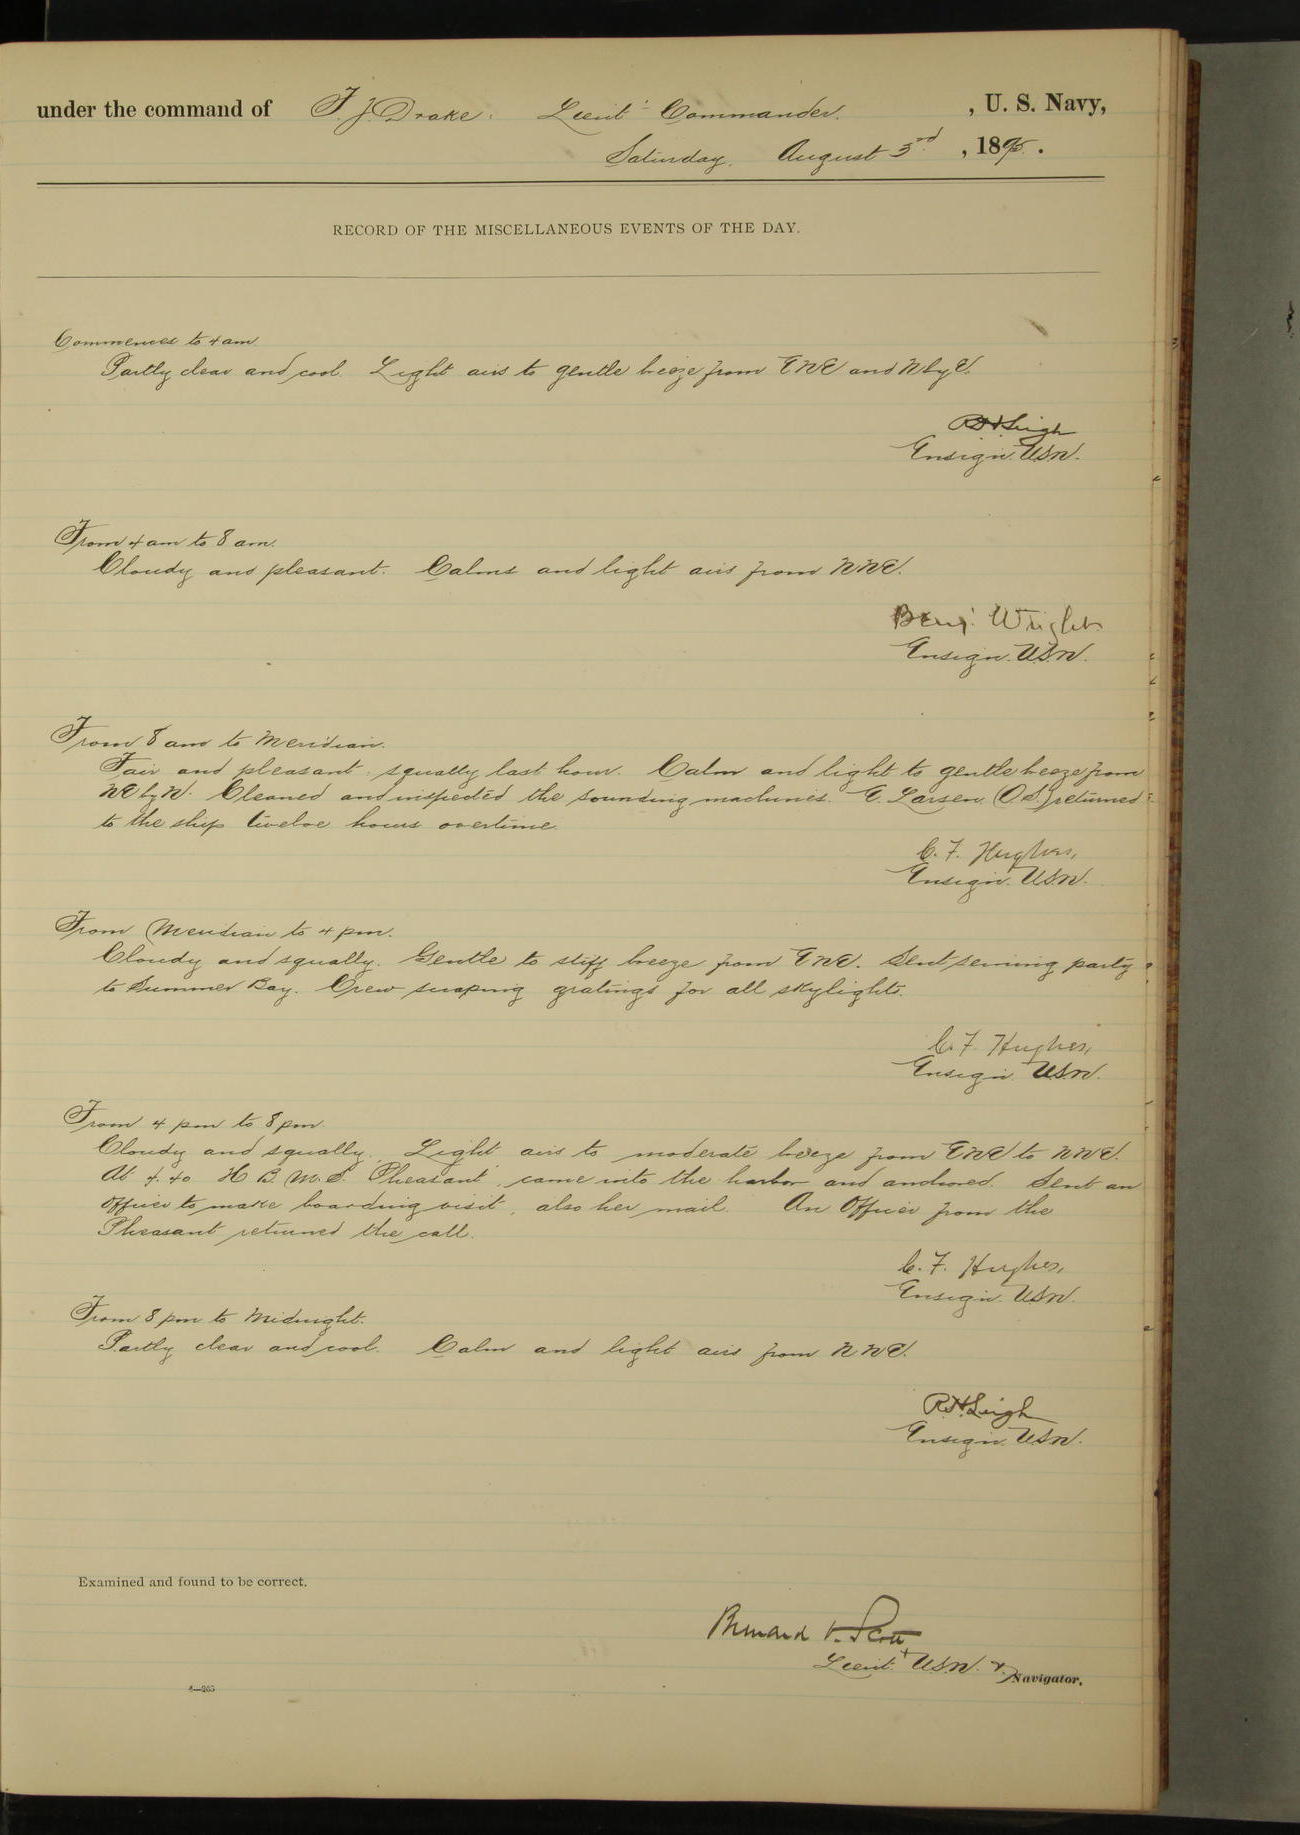 under the command of F. J. Drake. Lieut. Commander. , U. S. Navy,
Saturday, August 3rd , 1895 .
RECORD OF THE MISCELLANEOUS EVENTS OF THE DAY.
Commences to 4 am.
Partly clear and cool. Light airs to gentle breeze from ENE and N by E.
R H Leigh
Ensign. USN.
From 4 am to 8 am.
Cloudy and pleasant. Calms and light airs from NNE.
Benj. Wright
Ensign. USN.
From 8 am to Meridian.
Fair and pleasant, squally last hour. Calm and light to gentle breeze from
NE by N. Cleaned and inspected the sounding machines. E. Larsen (O.S.) returned
to the ship twelve hours overtime.
C. F. Hughes,
Ensign. USN.
From Meridian to 4 pm.
Cloudy and squally. Gentle to stiff breeze from ENE. Sent seining party
to Summer Bay. Crew scraping gratings for all skylights.
C. F. Hughes,
Ensign. USN.
From 4 pm to 8 pm.
Cloudy and squally. Light airs to moderate breeze from ENE to NNE.
At 4.40 H B. M. S. Pheasant, came into the harbor and anchored. Sent an
officer to make boarding visit, also her mail. An Officer from the
Pheasant returned the call.
C. F. Hughes,
Ensign. USN.
From 8 pm to Midnight.
Partly clear and cool. Calm and light airs from NNE.
R. H. Leigh
Ensign. USN.
Examined and found to be correct.
Bernard O. Scott
Lieut. USN. & Navigator.